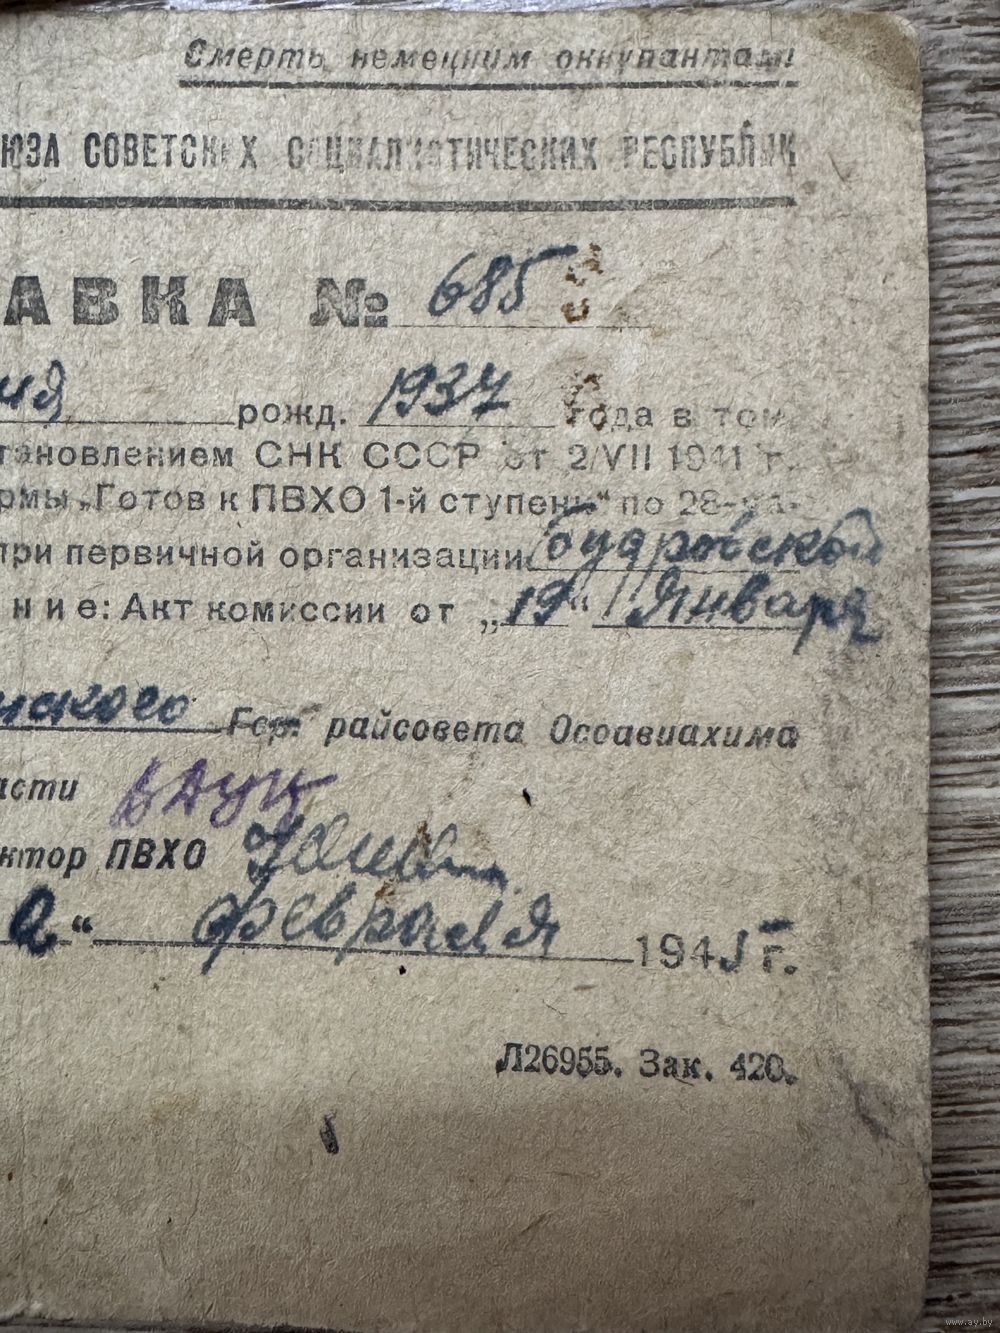 Смерть немецким оккупантам!
ЮЗА СОВЕТСКИХ СОЦИАЛИСТИЧЕСКИХ РЕСПУБЛИК
АВКА № 685
ия рожд. 1937 года в том,
тановлением СНК СССР от 2/VII 1941 г.
рмы „Готов к ПВХО 1-й ступени“ по 28-ча-
при первичной организации
ние: Акт комиссии от „19“ Января
нского Гор. райсовета Осоавиахима
асти
ктор ПВХО
а“ февраля 1945 г.
Л26955. Зак. 420.
www.ay.by